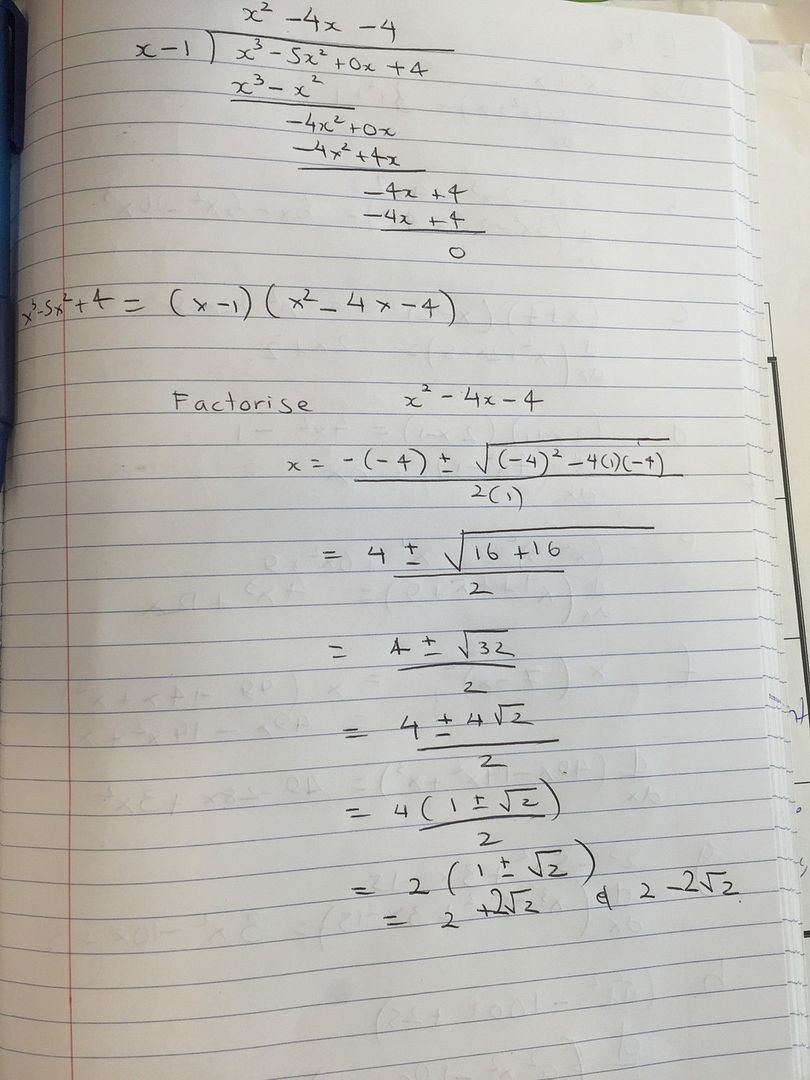 x² - 4x - 4
x - 1 ) x³ - 5x² + 0x + 4
x³ - x²
-4x² + 0x
-4x² + 4x
-4x + 4
-4x + 4
0
x³-5x²+4 = (x-1)(x² - 4x - 4)
Factorise x² - 4x - 4
x = -(-4) ± √(-4)² - 4(1)(-4)
2(1)
= 4 ± √16 + 16
2
= 4 ± √32
2
= 4 ± 4√2
2
= 4(1 ± √2)
2
= 2(1 ± √2)
= 2 + 2√2 & 2 - 2√2